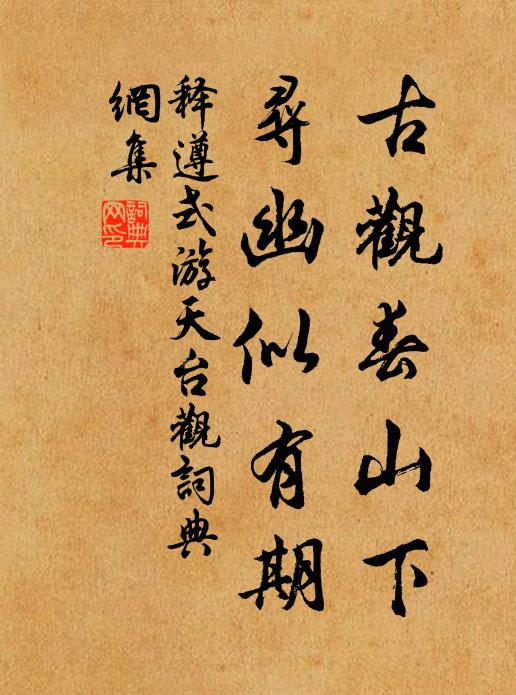 古觀春山下
尋幽似有期
释遵式游天台觀詞典
網集
詞典
网印